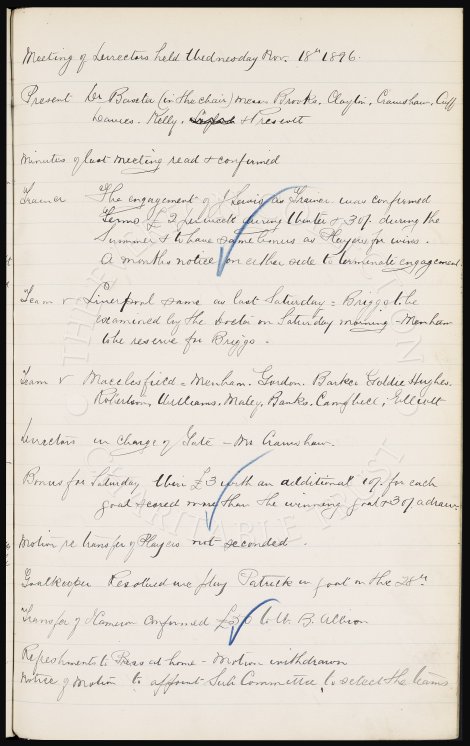 Meeting of Directors held Wednesday Nov. 18th 1896.
Present Dr Baxter (in the chair) Messrs Brooks, Clayton, Crawshaw, Cuff
Davies, Kelly, & Prescott
Minutes of last meeting read & confirmed
Trainer The engagement of J Lewis as Trainer was confirmed
Terms £2 per week during Winter & 30/- during the
Summer & to have same bonus as Players for wins.
A months notice on either side to terminate engagement.
Team v Liverpool same as last Saturday = Briggs to be
examined by the Doctor on Saturday morning - Menham
to be reserve for Briggs.
Team v Macclesfield = Menham. Gordon. Barker Goldie Hughes.
Robertson, Williams, Maley, Banks, Campbell, Elliott
Directors in charge of Gate - Mr Crawshaw.
Bonus for Saturday Win £3 with an additional 10/- for each
goal scored more than the winning goal & 30/- a draw.
Motion re transfer of Players not seconded.
Goalkeeper Resolved we play Patrick in goal on the 28th.
Transfer of Cameron Confirmed to W. B. Albion
Refreshments to Press at home - Motion withdrawn
Notice of Motion to appoint Sub Committee to select the teams